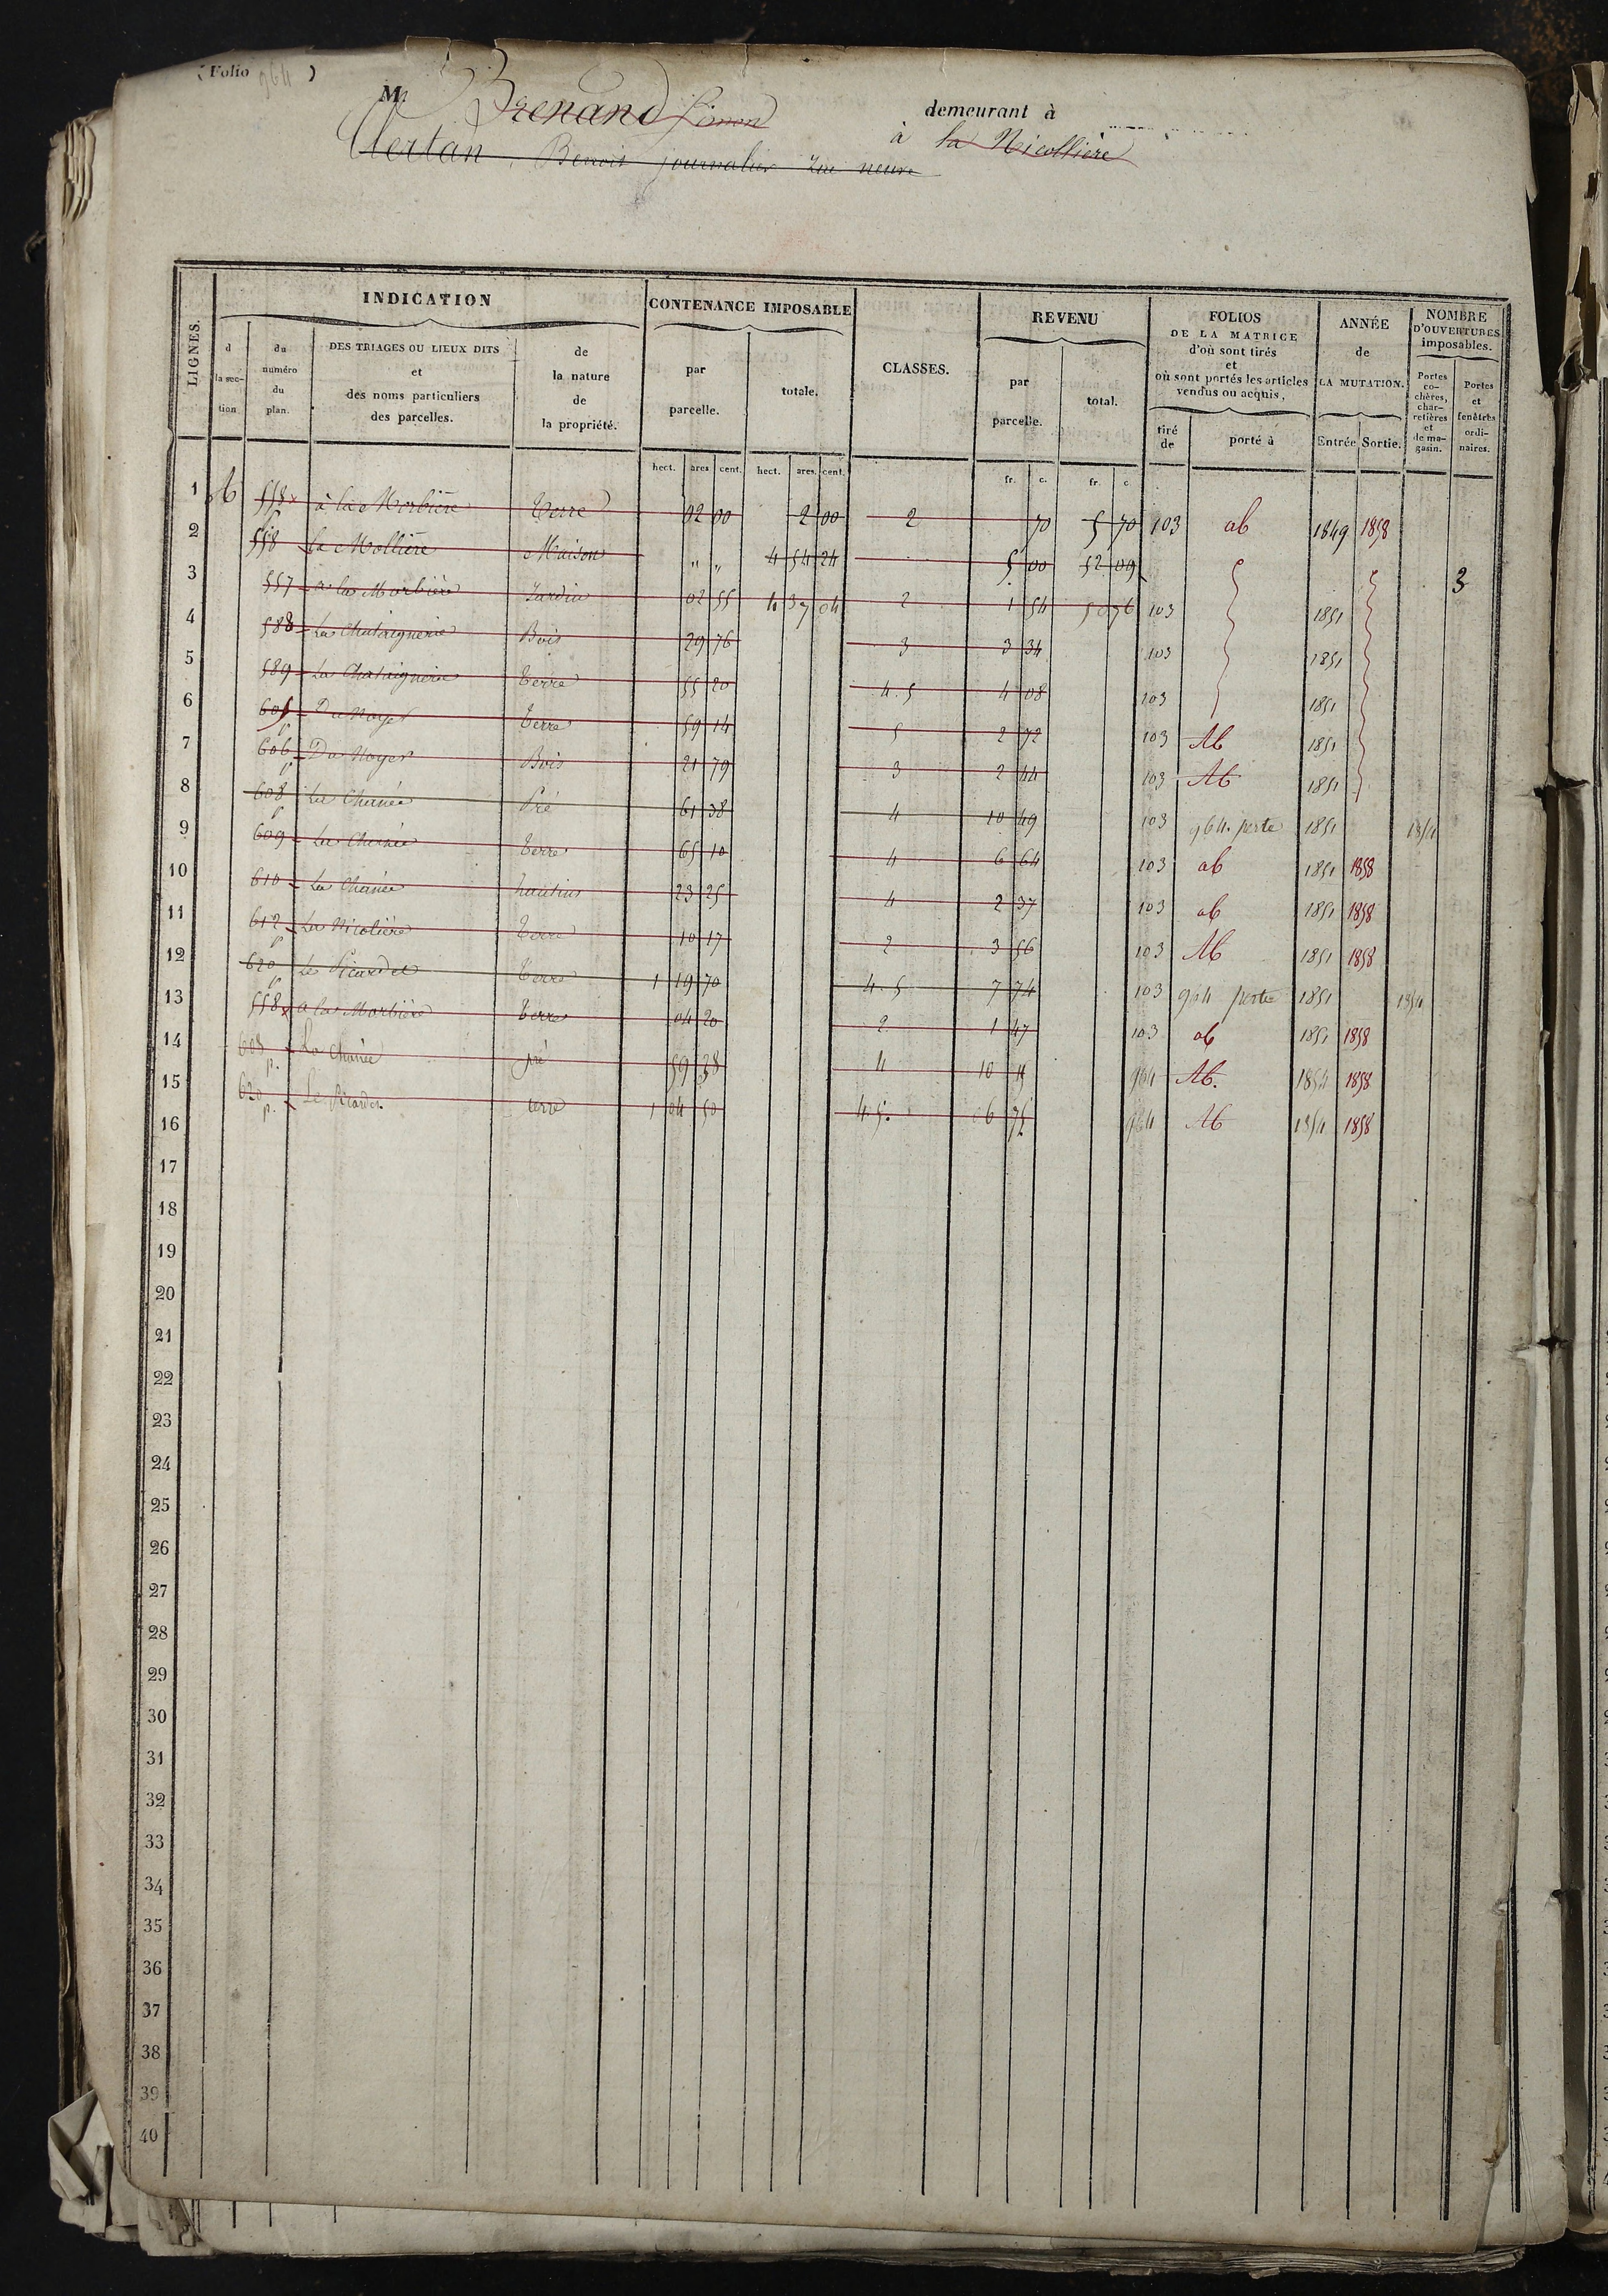 (Folio 964)
M. Brenand Simon demeurant à
à la Nicollière
Clertan, Benoit journalier rue neuve
LIGNES.
INDICATION
CONTENANCE IMPOSABLE
CLASSES.
REVENU
FOLIOS DE LA MATRICE d'où sont tirés et où sont portés les articles vendus ou acquis,
ANNÉE de LA MUTATION.
NOMBRE D'OUVERTURES imposables.
d la section
du numéro du plan.
DES TRIAGES OU LIEUX DITS et des noms particuliers des parcelles.
de la nature de la propriété.
par parcelle.
totale.
par parcelle.
total.
tiré de
porté à
Entrée
Sortie.
Portes cochères, charretières et de magasin.
Portes et fenêtres ordinaires.
hect. ares. cent. hect. ares. cent. fr. c. fr. c
1 b 558 p à la Morbière Terre 02 00 2 00 2 70 5 70 103 ab 1849 1858
2 558 La Mollière Maison " " 4 54 24 5 00 52 09 3
3 557 à la Morbière Jardin 02 55 4 37 04 2 1 54 50 76 103 1851
4 588 La Chataignerie Bois 29 76 3 3 34 103 1851
5 589 La Chataignerie Terre 55 20 4.5 4 08 103 1851
6 605 p Du Noyer Terre 59 14 5 2 72 103 Ab 1851
7 606 p Du Noyer Bois 21 79 3 2 44 103 Ab 1851
8 608 p La Chanée Pré 61 38 4 10 49 103 964. perte 1851 1854
9 609 La Chanée Terre 65 10 4 6 64 103 ab 1851 1858
10 610 La Chanée hautins 23 25 4 2 37 103 ab 1851 1858
11 612 p La Nicolière Terre 10 17 2 3 56 103 Ab 1851 1858
12 620 p Le Picardet Terre 1 19 70 4.5 7 74 103 964 perte 1851 1854
13 558 à la Morbière Terre 04 20 2 1 47 103 ab 1851 1858
14 608 p. La Chanée pré 59 38 4 10 15 964 Ab. 1854 1858
15 620 p. Le Picardet terre 1 04 50 4.5. 6 75 964 Ab 1854 1858
16
17
18
19
20
21
22
23
24
25
26
27
28
29
30
31
32
33
34
35
36
37
38
39
40